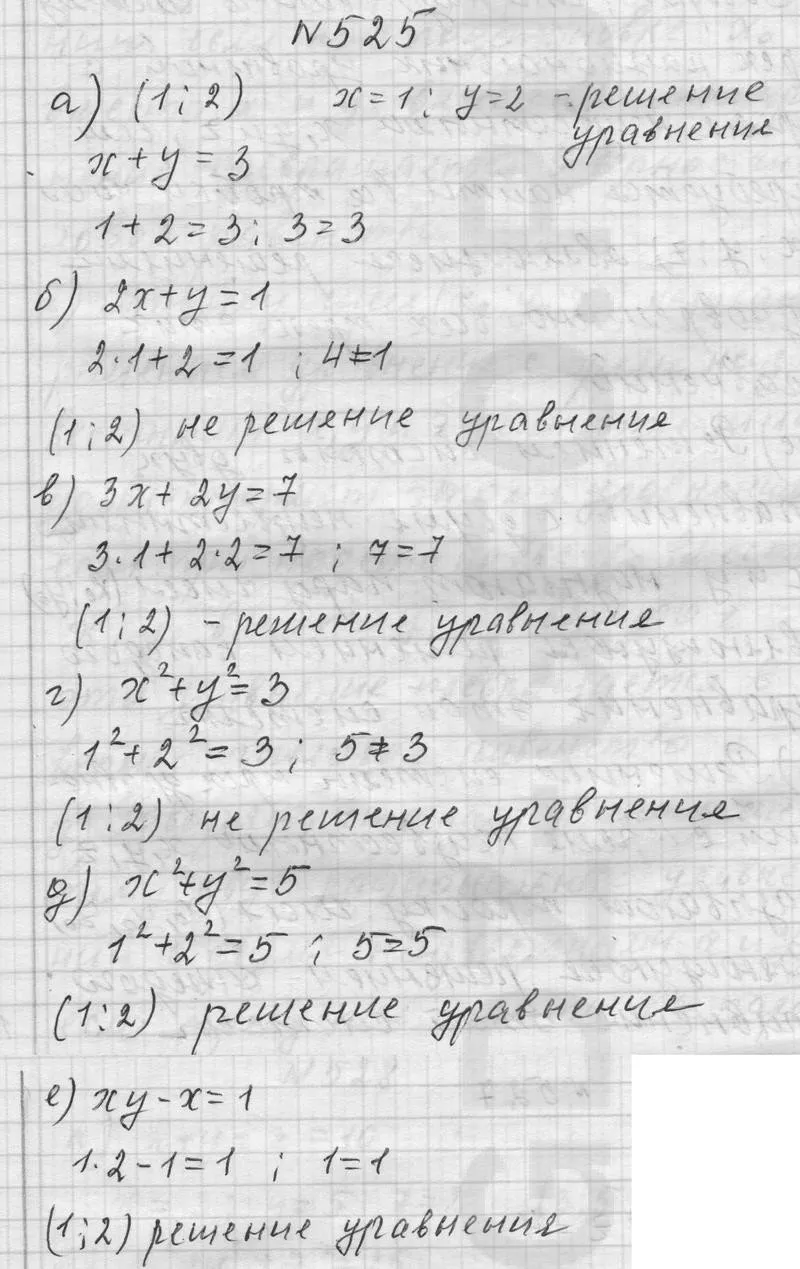 N 525
а) (1; 2) x = 1; y = 2 - решение
уравнения
x + y = 3
1 + 2 = 3; 3 = 3
б) 2x + y = 1
2·1 + 2 = 1 ; 4 ≠ 1
(1; 2) не решение уравнения
в) 3x + 2y = 7
3·1 + 2·2 = 7 ; 7 = 7
(1; 2) - решение уравнения
г) x² + y² = 3
1² + 2² = 3; 5 ≠ 3
(1; 2) не решение уравнения
д) x² + y² = 5
1² + 2² = 5 ; 5 = 5
(1; 2) решение уравнения
е) xy - x = 1
1·2 - 1 = 1 ; 1 = 1
(1; 2) решение уравнения